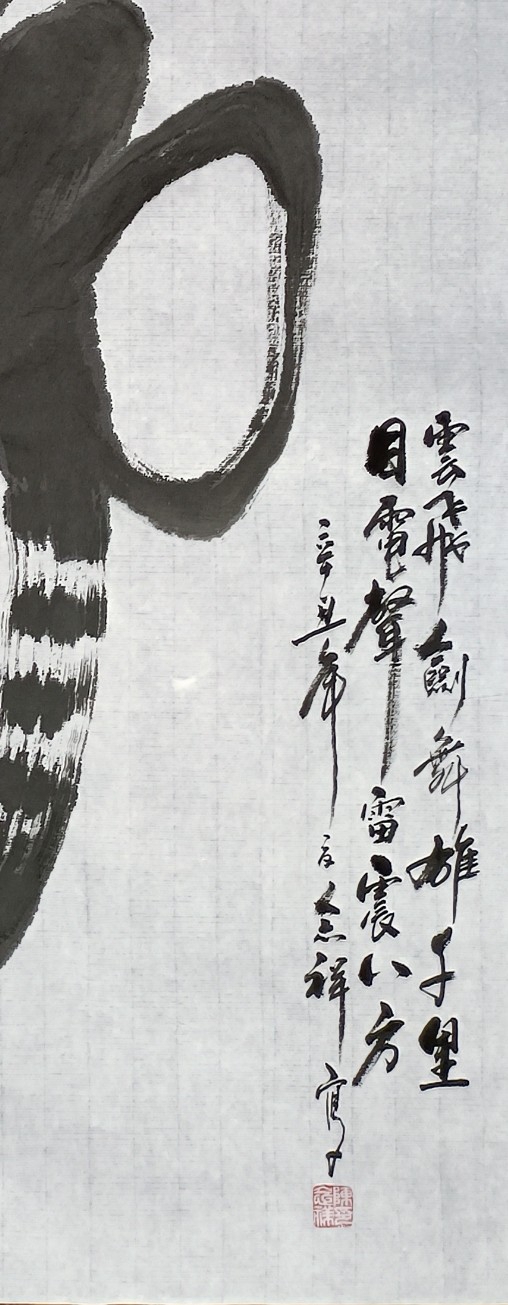 雲飛劍舞雄千里
目電聲雷震八方
辛丑年念祥寫